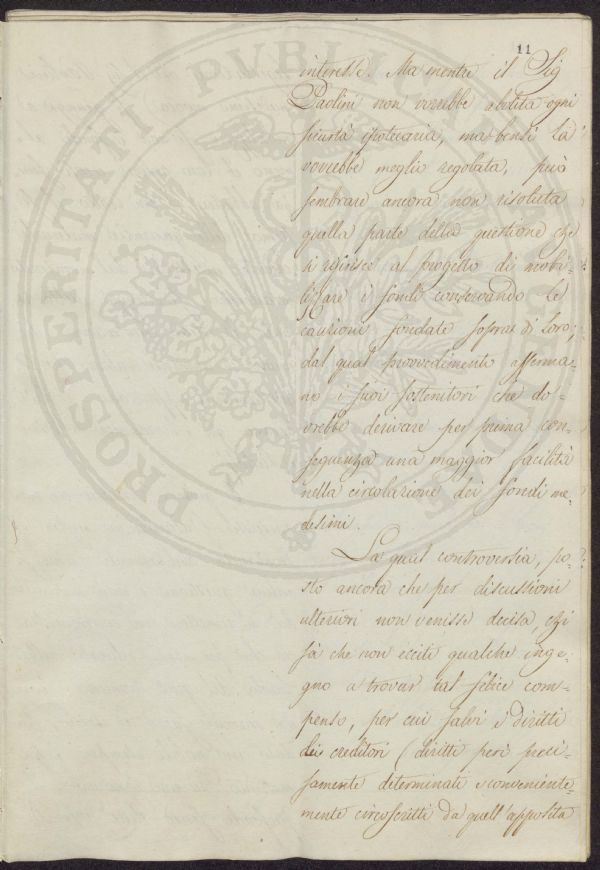 11
interesse. Ma mentre il Sig
Paolini non vorrebbe abolita ogni
sicurtà ipotecaria, ma bensì la
vorrebbe meglio regolata, può
sembrare ancora non risoluta
quella parte della questione che
si riferisce al progetto di mobi-
lizzare i fondi conservando le
cauzioni fondate sopra di loro;
dal qual provvedimento afferma-
no i suoi sostenitori che do-
vrebbe derivare per prima con-
seguenza una maggior facilità
nella circolazione dei fondi me-
desimi.
La qual controversia, po-
sto ancora che per discussioni
ulteriori non venisse decisa, chi
sà che non ecciti qualche inge-
gno a trovar tal felice com-
penso, per cui salvi i diritti
dei creditori (diritti però preci-
samente determinati e conveniente-
mente circoscritti da quell'apposita
PROSPERITATI PUBLICAE